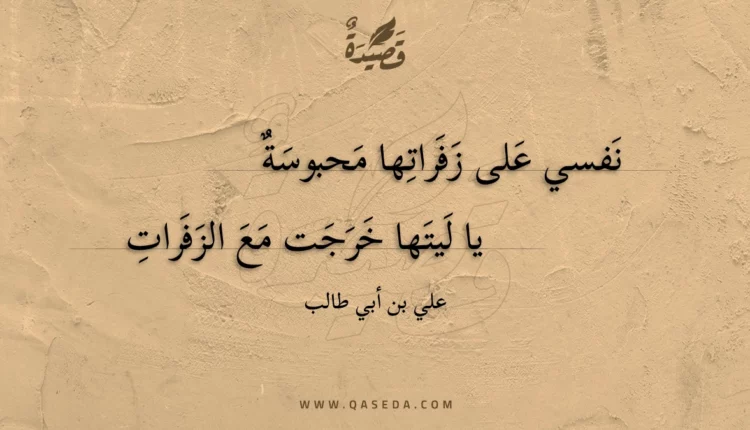 قَصِيدَةٌ
نَفسي عَلى زَفَراتِها مَحبوسَةٌ
يا لَيتَها خَرَجَت مَعَ الزَفَراتِ
علي بن أبي طالب
WWW.QASEDA.COM